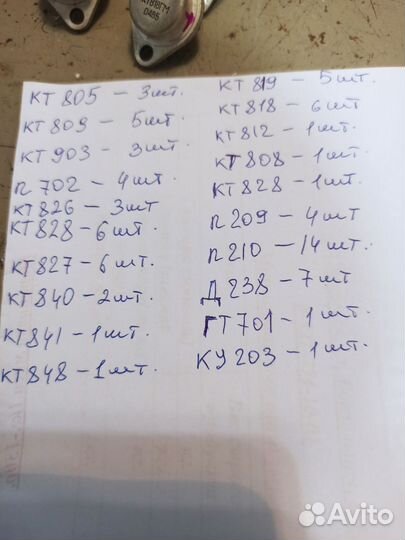 КТ818ГМ
0485
КТ 805 – 3 шт.
КТ 809 – 5 шт.
КТ 903 – 3 шт.
п 702 – 4 шт
КТ 826 – 3 шт
КТ 828 – 6 шт.
КТ 827 – 6 шт.
КТ 840 – 2 шт.
КТ 841 – 1 шт.
КТ 848 – 1 шт.
КТ 819 – 5 шт.
КТ 818 – 6 шт
КТ 812 – 1 шт.
КТ 808 – 1 шт.
КТ 828 – 1 шт.
п 209 – 4 шт
п 210 – 14 шт.
Д 238 – 7 шт
ГТ 701 – 1 шт.
КУ 203 – 1 шт.
Avito